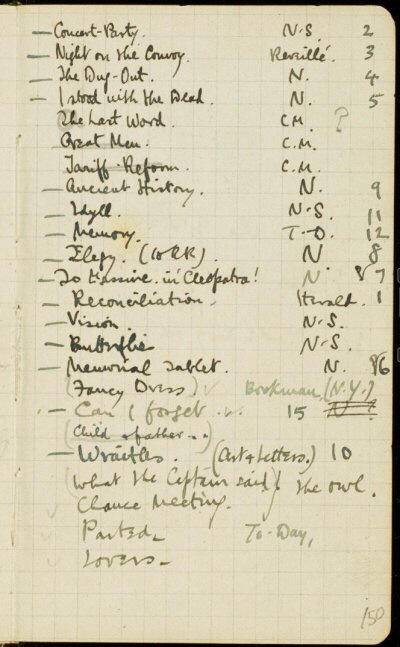 — Concert-Party. N.S. 2
— Night on the Convoy. Reveillé. 3
— The Dug-Out. N. 4
— I stood with the Dead. N. 5
The Last Word. C.M. ?
Great Men. C.M.
Tariff Reform. C.M.
— Ancient History. N. 9
— Idyll. N.S. 11
— Memory. T-D. 12
— Elegy. (to RR) N 8
— To Massine in 'Cleopatra' N 7
— Reconciliation. Herald. 1
— Vision. N.S.
— Butterflies N.S.
— Memorial Tablet. N. 6
(Fancy Dress) Bookman (N.Y.)
— Can I forget ... 15 N.
(Child & father ..)
— Wraiths. (Art & Letters.) 10
(What the Captain said) The Owl.
Chance Meeting.
Parted. To-Day,
Lovers.
150